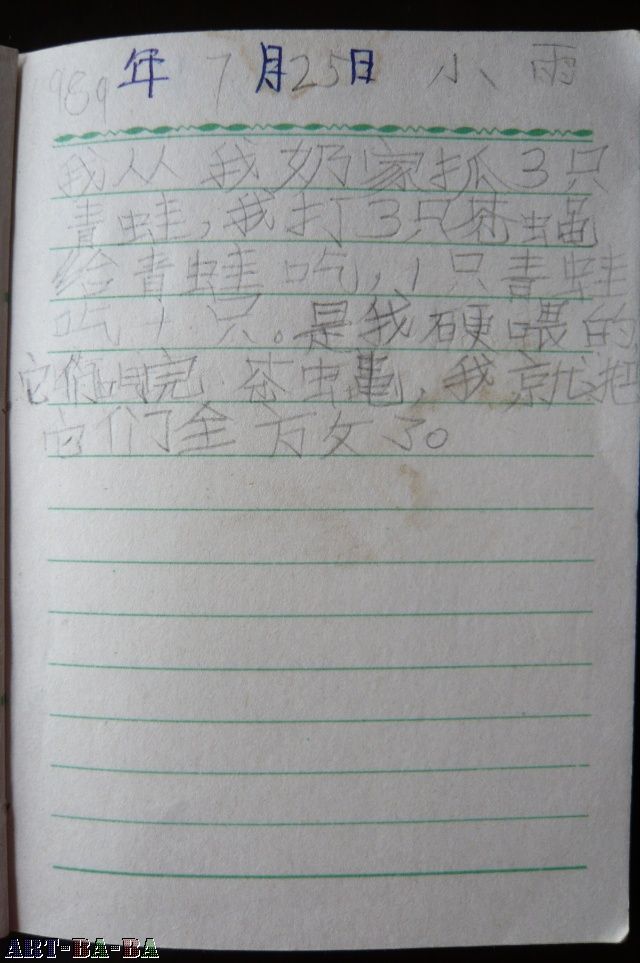 1989年7月25日 小雨
我从我奶家抓3只
青蛙,我打3只苍蝇
给青蛙吃,1只青蛙
吃1只。是我硬喂的
它们吃完苍蝇,我就把
它们全放了。
ART-BA-BA